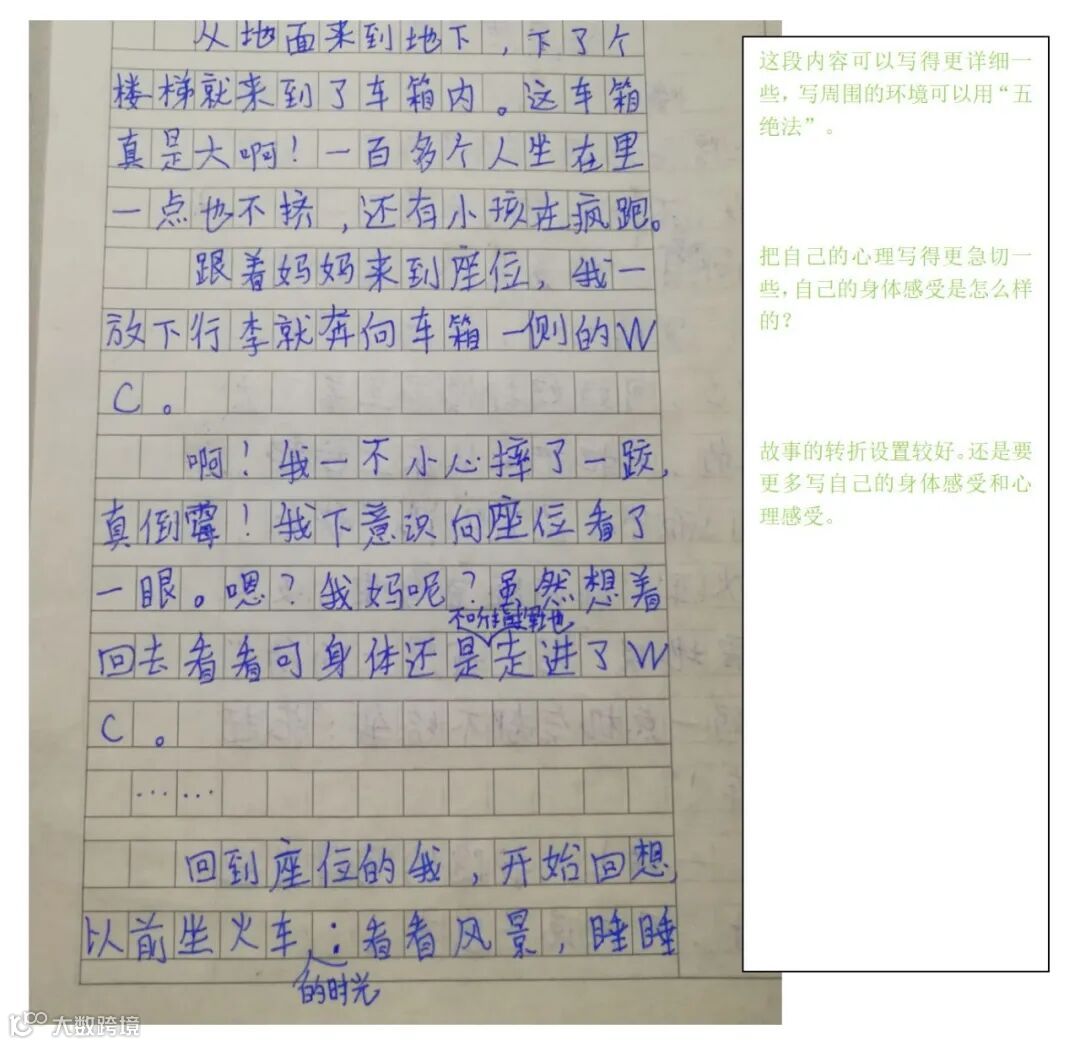 从地面来到地下，下了个
楼梯就来到了车箱内。这车箱
真是大啊！一百多个人坐在里
一点也不挤，还有小孩在疯跑。
跟着妈妈来到座位，我一
放下行李就奔向车箱一侧的W
C。
啊！我一不小心摔了一跤，
真倒霉！我下意识向座位看了
一眼。嗯？我妈呢？虽然想着
不听使唤地
回去看看可身体还是走进了W
C。
……
回到座位的我，开始回想
以前坐火车：看看风景，睡睡
的时光
这段内容可以写得更详细一
些，写周围的环境可以用“五
绝法”。
把自己的心理写得更急切一
些，自己的身体感受是怎么样
的？
故事的转折设置较好。还是要
更多写自己的身体感受和心
理感受。
大数跨境